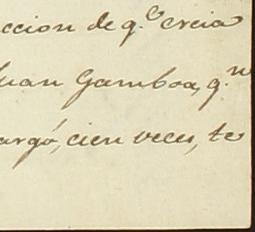 ccion de q.e creia
uan Gamboa, q.n
argó, cien veces, te